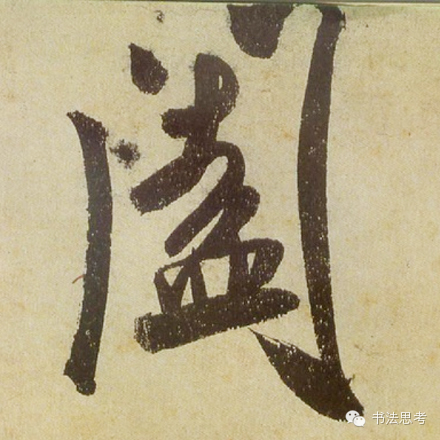 阖
书法思考